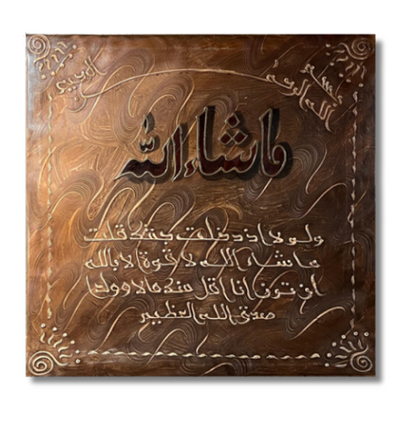 بسم الله الرحمن الرحيم
ماشاء الله
ولولا اذ دخلت جنتك قلت
ما شاء الله لا قوة الا بالله
ان ترن انا اقل منك مالا وولدا
صدق الله العظيم